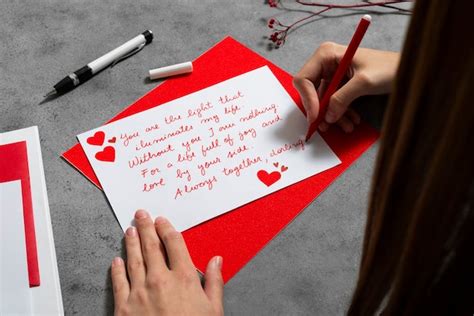 You are the light that
illuminates my life.
Without you I am nothing.
For a life full of joy and
love by your side.
Always together, darling